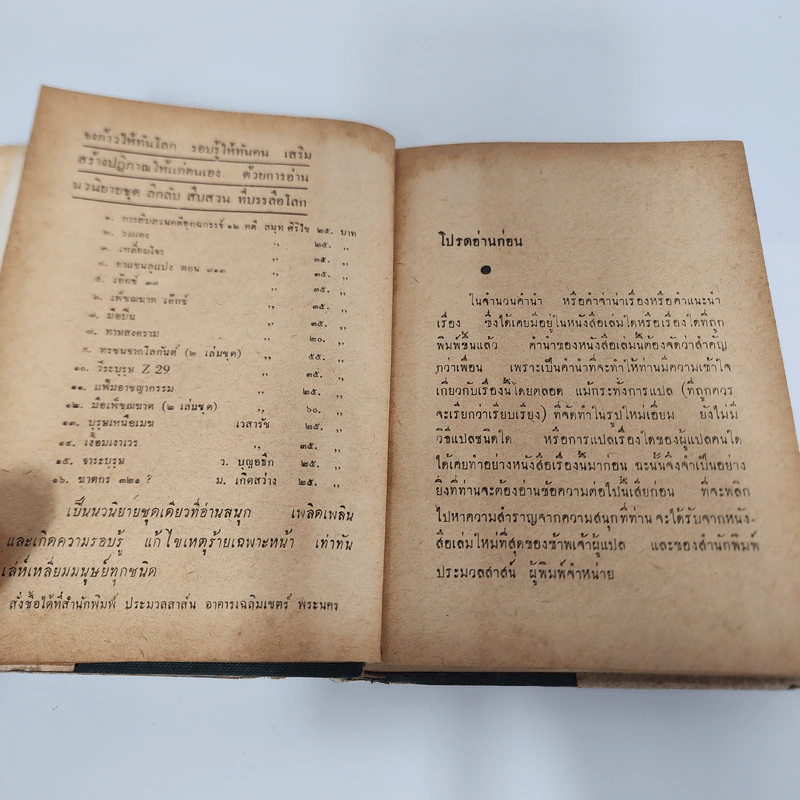 จงก้าวให้ทันโลก รอบรู้ให้ทันคน เสริม
สร้างปฏิภาณให้แก่ตนเอง ด้วยการอ่าน
นวนิยายชุด ลึกลับ สืบสวน ที่บรรลือโลก
๑. การสืบสวนคดีอุกฉกรรจ์ ๑๒ คดี สมุท ศิริไข ๒๕. บาท
๒. ,, ๒๕. ,,
๓. เหลี่ยมโจร ,, ๓๕. ,,
๔. อาแซนลูแปง ตอน ๘๑๓ ,, ๓๕. ,,
๕. เอ๊กซ์ ,, ๓๕. ,,
๖. เพ็ชฌฆาต เอ๊กซ์ ,, ๓๕. ,,
๗. มือปืน ,, ๓๕. ,,
๘. ทาษสงคราม ,, ๒๐. ,,
๙. ทรชนจากโลกันต์ (๒ เล่มชุด) ,, ๕๕. ,,
๑๐. วีระบุรุษ Z 29 ,, ๓๕. ,,
๑๑. แฟ้มอาชญากรรม ,, ๒๕. ,,
๑๒. มือเพ็ชฌฆาต (๒ เล่มชุด) ,, ๖๐. ,,
๑๓. บุรุษเหนือเมฆ เวสารัช ๒๕. ,,
๑๔. เงื้อมเงาเวร ,, ๓๕. ,,
๑๕. จาระบุรุษ ว. บุญอธึก ๒๕. ,,
๑๖. ฆาตกร ๓๒๑ ? ม. เกิดสว่าง ๒๕. ,,
เป็นนวนิยายชุดเดียวที่อ่านสนุก เพลิดเพลิน
และเกิดความรอบรู้ แก้ไขเหตุร้ายเฉพาะหน้า เท่าทัน
เล่ห์เหลี่ยมมนุษย์ทุกชนิด
สั่งซื้อได้ที่สำนักพิมพ์ ประมวลสาส์น อาคารเฉลิมเขตร์ พระนคร
โปรดอ่านก่อน
ในจำนวนคำนำ หรือคำจ่าน่าเรื่องหรือคำแนะนำ
เรื่อง ซึ่งได้เคยมีอยู่ในหนังสือเล่มใดหรือเรื่องใดที่ถูก
พิมพ์ขึ้นแล้ว คำนำของหนังสือเล่มนี้ต้องจัดว่าสำคัญ
กว่าเพื่อน เพราะเป็นคำนำที่จะทำให้ท่านมีความเข้าใจ
เกี่ยวกับเรื่องนี้โดยตลอด แม้กระทั่งการแปล (ที่ถูกควร
จะเรียกว่าเรียบเรียง) ที่จัดทำในรูปใหม่เอี่ยม ยังไม่มี
วิธีแปลชนิดใด หรือการแปลเรื่องใดของผู้แปลคนใด
ได้เคยทำอย่างหนังสือเรื่องนี้มาก่อน ฉะนั้นจึงจำเป็นอย่าง
ยิ่งที่ท่านจะต้องอ่านข้อความต่อไปนี้เสียก่อน ที่จะพลิก
ไปหาความสำราญจากความสนุกที่ท่านจะได้รับจากหนัง-
สือเล่มใหม่ที่สุดของข้าพเจ้าผู้แปล และของสำนักพิมพ์
ประมวลสาส์น ผู้พิมพ์จำหน่าย